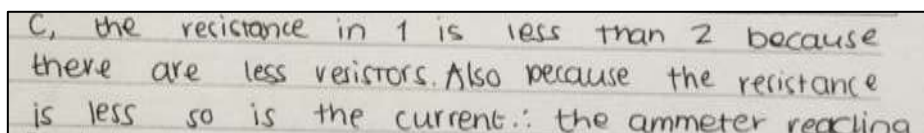 C, the resistance in 1 is less than 2 because
there are less resistors. Also because the resistance
is less so is the current ∴ the ammeter reading